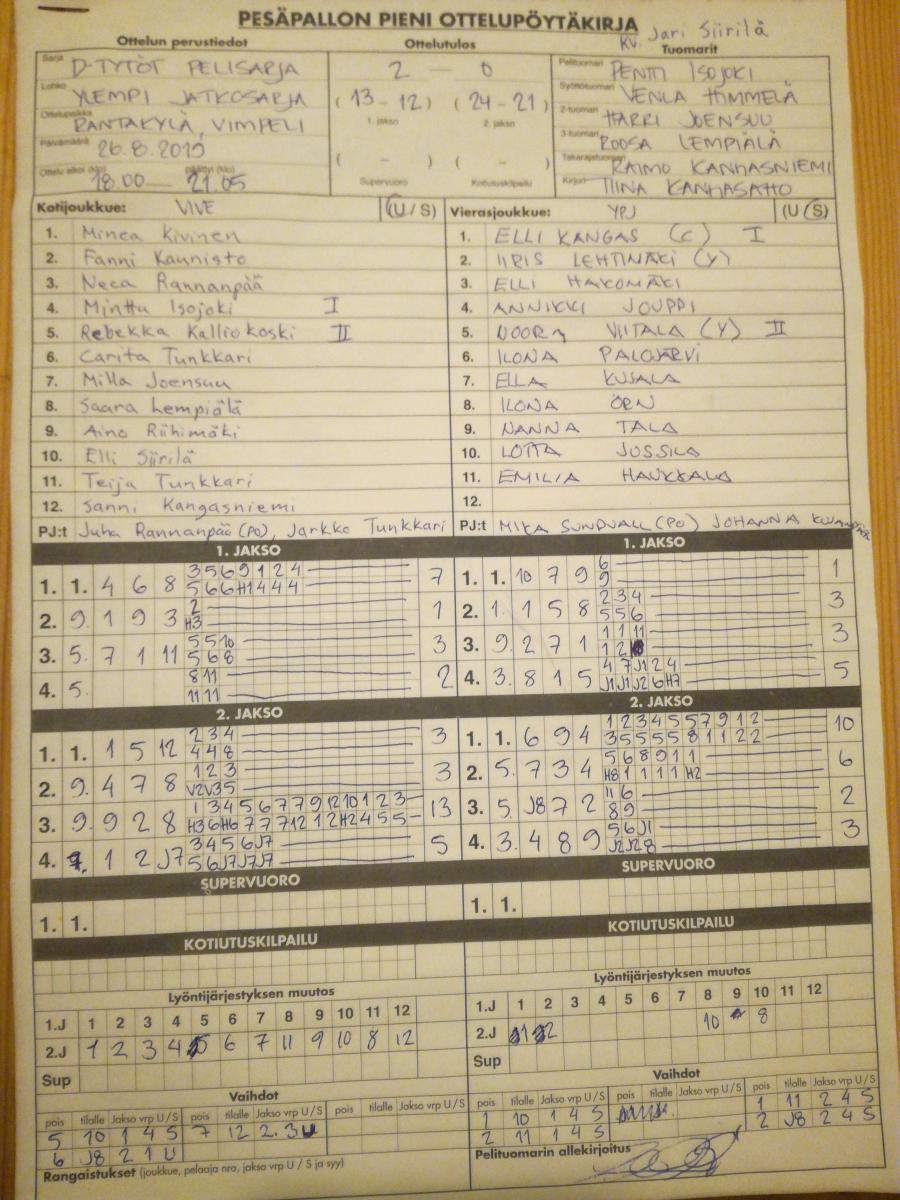 PESÄPALLON PIENI OTTELUPÖYTÄKIRJA
KV. Jari Siirilä
Ottelun perustiedot
Ottelutulos
Tuomarit
Sarja D-TYTÖT PELISARJA
2 — 0
Pelituomari PENTTI ISOJOKI
Lohko YLEMPI JATKOSARJA
(13 - 12) (24 - 21)
Syöttötuomari VENLA HIMMELÄ
Ottelupaikka RANTAKYLÄ, VIMPELI
1. jakso 2. jakso
2-tuomari HARRI JOENSUU
Päivämäärä 26.8.2019
3-tuomari ROOSA LEMPIÄLÄ
( - ) ( - )
Takarajatuomari RAIMO KANGASNIEMI
Ottelu alkoi (klo) 18.00 — päättyi (klo) 21.05
Supervuoro Kotiutuskilpailu
Kirjuri TIINA KANGASAHO
Kotijoukkue: VIVE (U / S)
Vierasjoukkue: YPJ (U / S)
1. Minea Kivinen
1. ELLI KANGAS (C) I
2. Fanni Kaunisto
2. IIRIS LEHTIMÄKI (Y)
3. Neea Rannanpää
3. ELLI HAKOMÄKI
4. Minttu Isojoki I
4. ANNIKKI JOUPPI
5. Rebekka Kalliokoski II
5. NOORA VIITALA (Y) II
6. Carita Tunkkari
6. ILONA PALOJÄRVI
7. Milla Joensuu
7. ELLA KUJALA
8. Saara Lempiälä
8. ILONA ÖRN
9. Aino Riihimäki
9. NANNA TALA
10. Elli Siirilä
10. LOTTA JUSSILA
11. Teija Tunkkari
11. EMILIA HAUKKALA
12. Sanni Kangasniemi
12.
PJ:t Juha Rannanpää (PO), Jarkko Tunkkari
PJ:t MIKA SUNDVALL (PO) JOHANNA
1. JAKSO
1. JAKSO
1. 1. 4 6 8 3 5 6 9 1 2 4 7
5 6 6 H1 4 4 4
1. 1. 10 7 9 6 1
9
2. 9. 1 9 3 2 1
H3
2. 1. 1 5 8 2 3 4 3
5 5 6
3. 5. 7 1 11 5 5 10 3
5 6 8
3. 9. 2 7 1 1 1 11 3
1 2
4. 5. 8 11 2
11 11
4. 3. 8 1 5 4 7 J1 2 4 5
J1 J1 J2 6 H7
2. JAKSO
2. JAKSO
1. 1. 1 5 12 2 3 4 3
4 4 8
1. 1. 6 9 4 1 2 3 4 5 5 7 9 1 2 10
3 5 5 5 5 8 1 1 2 2
2. 9. 4 7 8 1 2 3 3
V2 V3 5
2. 5. 7 3 4 5 6 8 9 1 1 6
H8 1 1 1 1 H2
3. 9. 9 2 8 1 3 4 5 6 7 7 9 12 10 1 2 3 13
H3 6 H6 7 7 7 12 1 2 H2 4 5 5
3. 5. J8 7 2 11 6 2
8 9
4. 1 2 J7 3 4 5 6 J7 5
5 6 J7 J7 J7
4. 3. 4 8 9 5 6 J1 3
J2 J2 8
SUPERVUORO
SUPERVUORO
1. 1.
1. 1.
KOTIUTUSKILPAILU
KOTIUTUSKILPAILU
Lyöntijärjestyksen muutos
Lyöntijärjestyksen muutos
1.J 1 2 3 4 5 6 7 8 9 10 11 12
1.J 1 2 3 4 5 6 7 8 9 10 11 12
2.J 1 2 3 4 5 6 7 11 9 10 8 12
2.J 10 8
Sup
Sup
Vaihdot
Vaihdot
pois tilalle Jakso vrp U / S pois tilalle Jakso vrp U / S pois tilalle Jakso vrp U / S
pois tilalle Jakso vrp U / S pois tilalle Jakso vrp U / S pois tilalle Jakso vrp U / S
5 10 1 4 S 7 12 2. 3 U
1 10 1 4 S 1 11 2 4 S
6 J8 2 1 U
2 11 1 4 S 2 J8 2 4 S
Rangaistukset (joukkue, pelaaja nro, jakso vrp U / S ja syy)
Pelituomarin allekirjoitus